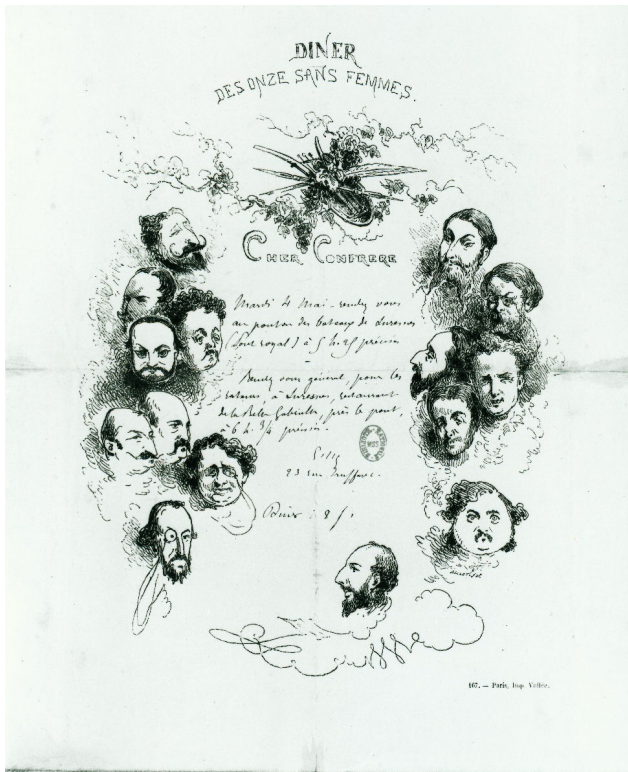 DINER
DES ONZE SANS FEMMES.
CHER CONFRERE
Mardi 4 Mai - rendez vous
au ponton des bateaux de Suresnes
(Pont royal) à 5 h. précises
Rendez vous général, pour les
à Suresnes, restaurant
de la Belle Gabrielle, près le pont,
à 6 h. 3/4 précises.
23 rue
167. — Paris, Imp. Vallée.